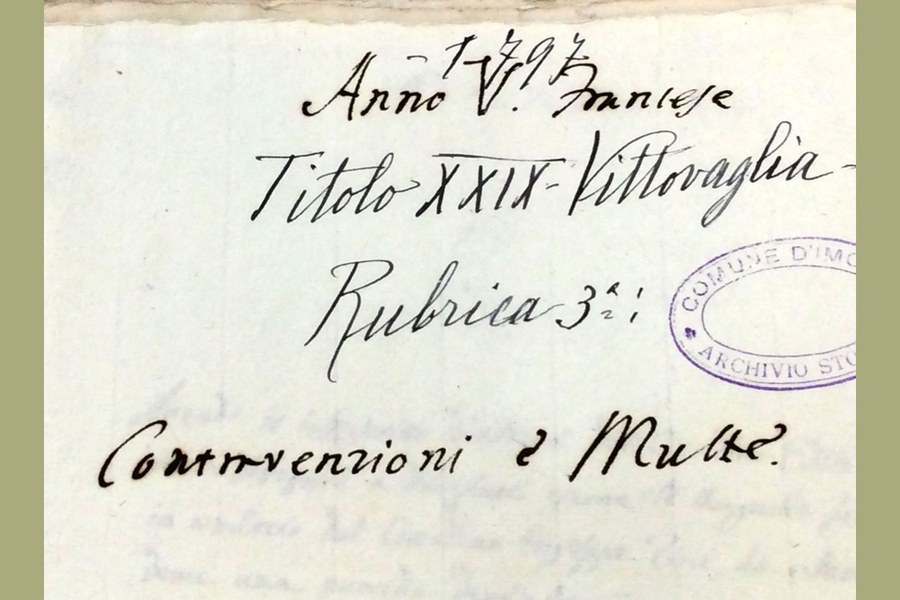 1797
Anno V. Francese
Titolo XXIX - Vittovaglia -
Rubrica 3ª:
COMUNE D'IMO
ARCHIVIO STO
Contravenzioni e Multe.